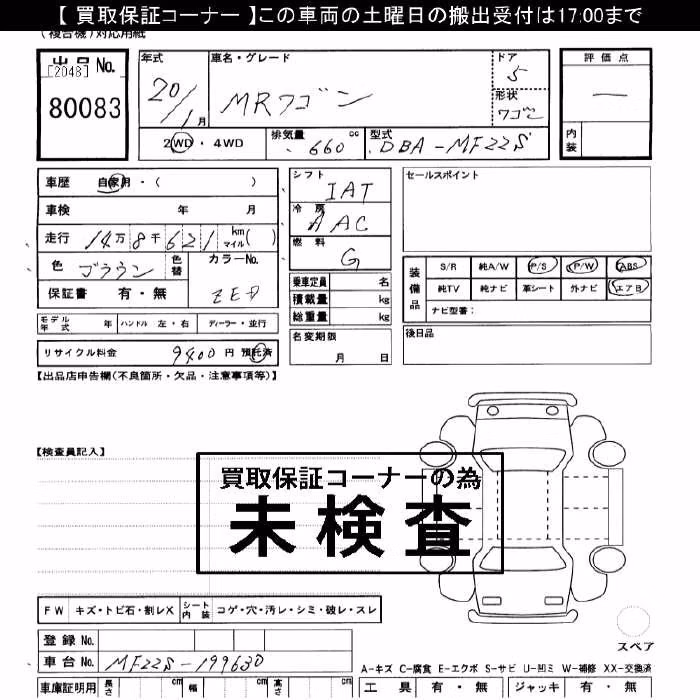 【 買取保証コーナー 】この車両の土曜日の搬出受付は17:00まで
(複合機)対応用紙
出品 No.
[2048]
80083
年式 車名・グレード ドア 評価点
20/1月 MRワゴン 5 —
形状 ワゴン
2WD・4WD 排気量 660 cc 型式 DBA-MF22S 内装
車歴 自家用・( )
車検 年 月
走行 14万8千621 km マイル( )
色 ブラウン 色替 カラーNo. ZED
保証書 有・無
シフト IAT
冷房 AAC
燃料 G
乗車定員 名
積載量 kg
総重量 kg
名変期限 月 日
セールスポイント
装備品 S/R 純A/W P/S P/W ABS
純TV 純ナビ 革シート 外ナビ エアB
ナビ型番:
後日品
モデル年式 年 ハンドル 左・右 ディーラー・並行
リサイクル料金 9400 円 預託済
【出品店申告欄(不良箇所・欠品・注意事項等)】
【検査員記入】
買取保証コーナーの為
未検査
FW キズ・トビ石・割レX シート内装 コゲ・穴・汚レ・シミ・破レ・スレ
スペア
登録 No.
車台 No. MF22S-199630
A-キズ C-腐食 E-エクボ S-サビ U-凹ミ W-補修 XX-交換済
車庫証明用 長さ cm 幅 cm 高さ cm 工具 有・無 ジャッキ 有・無